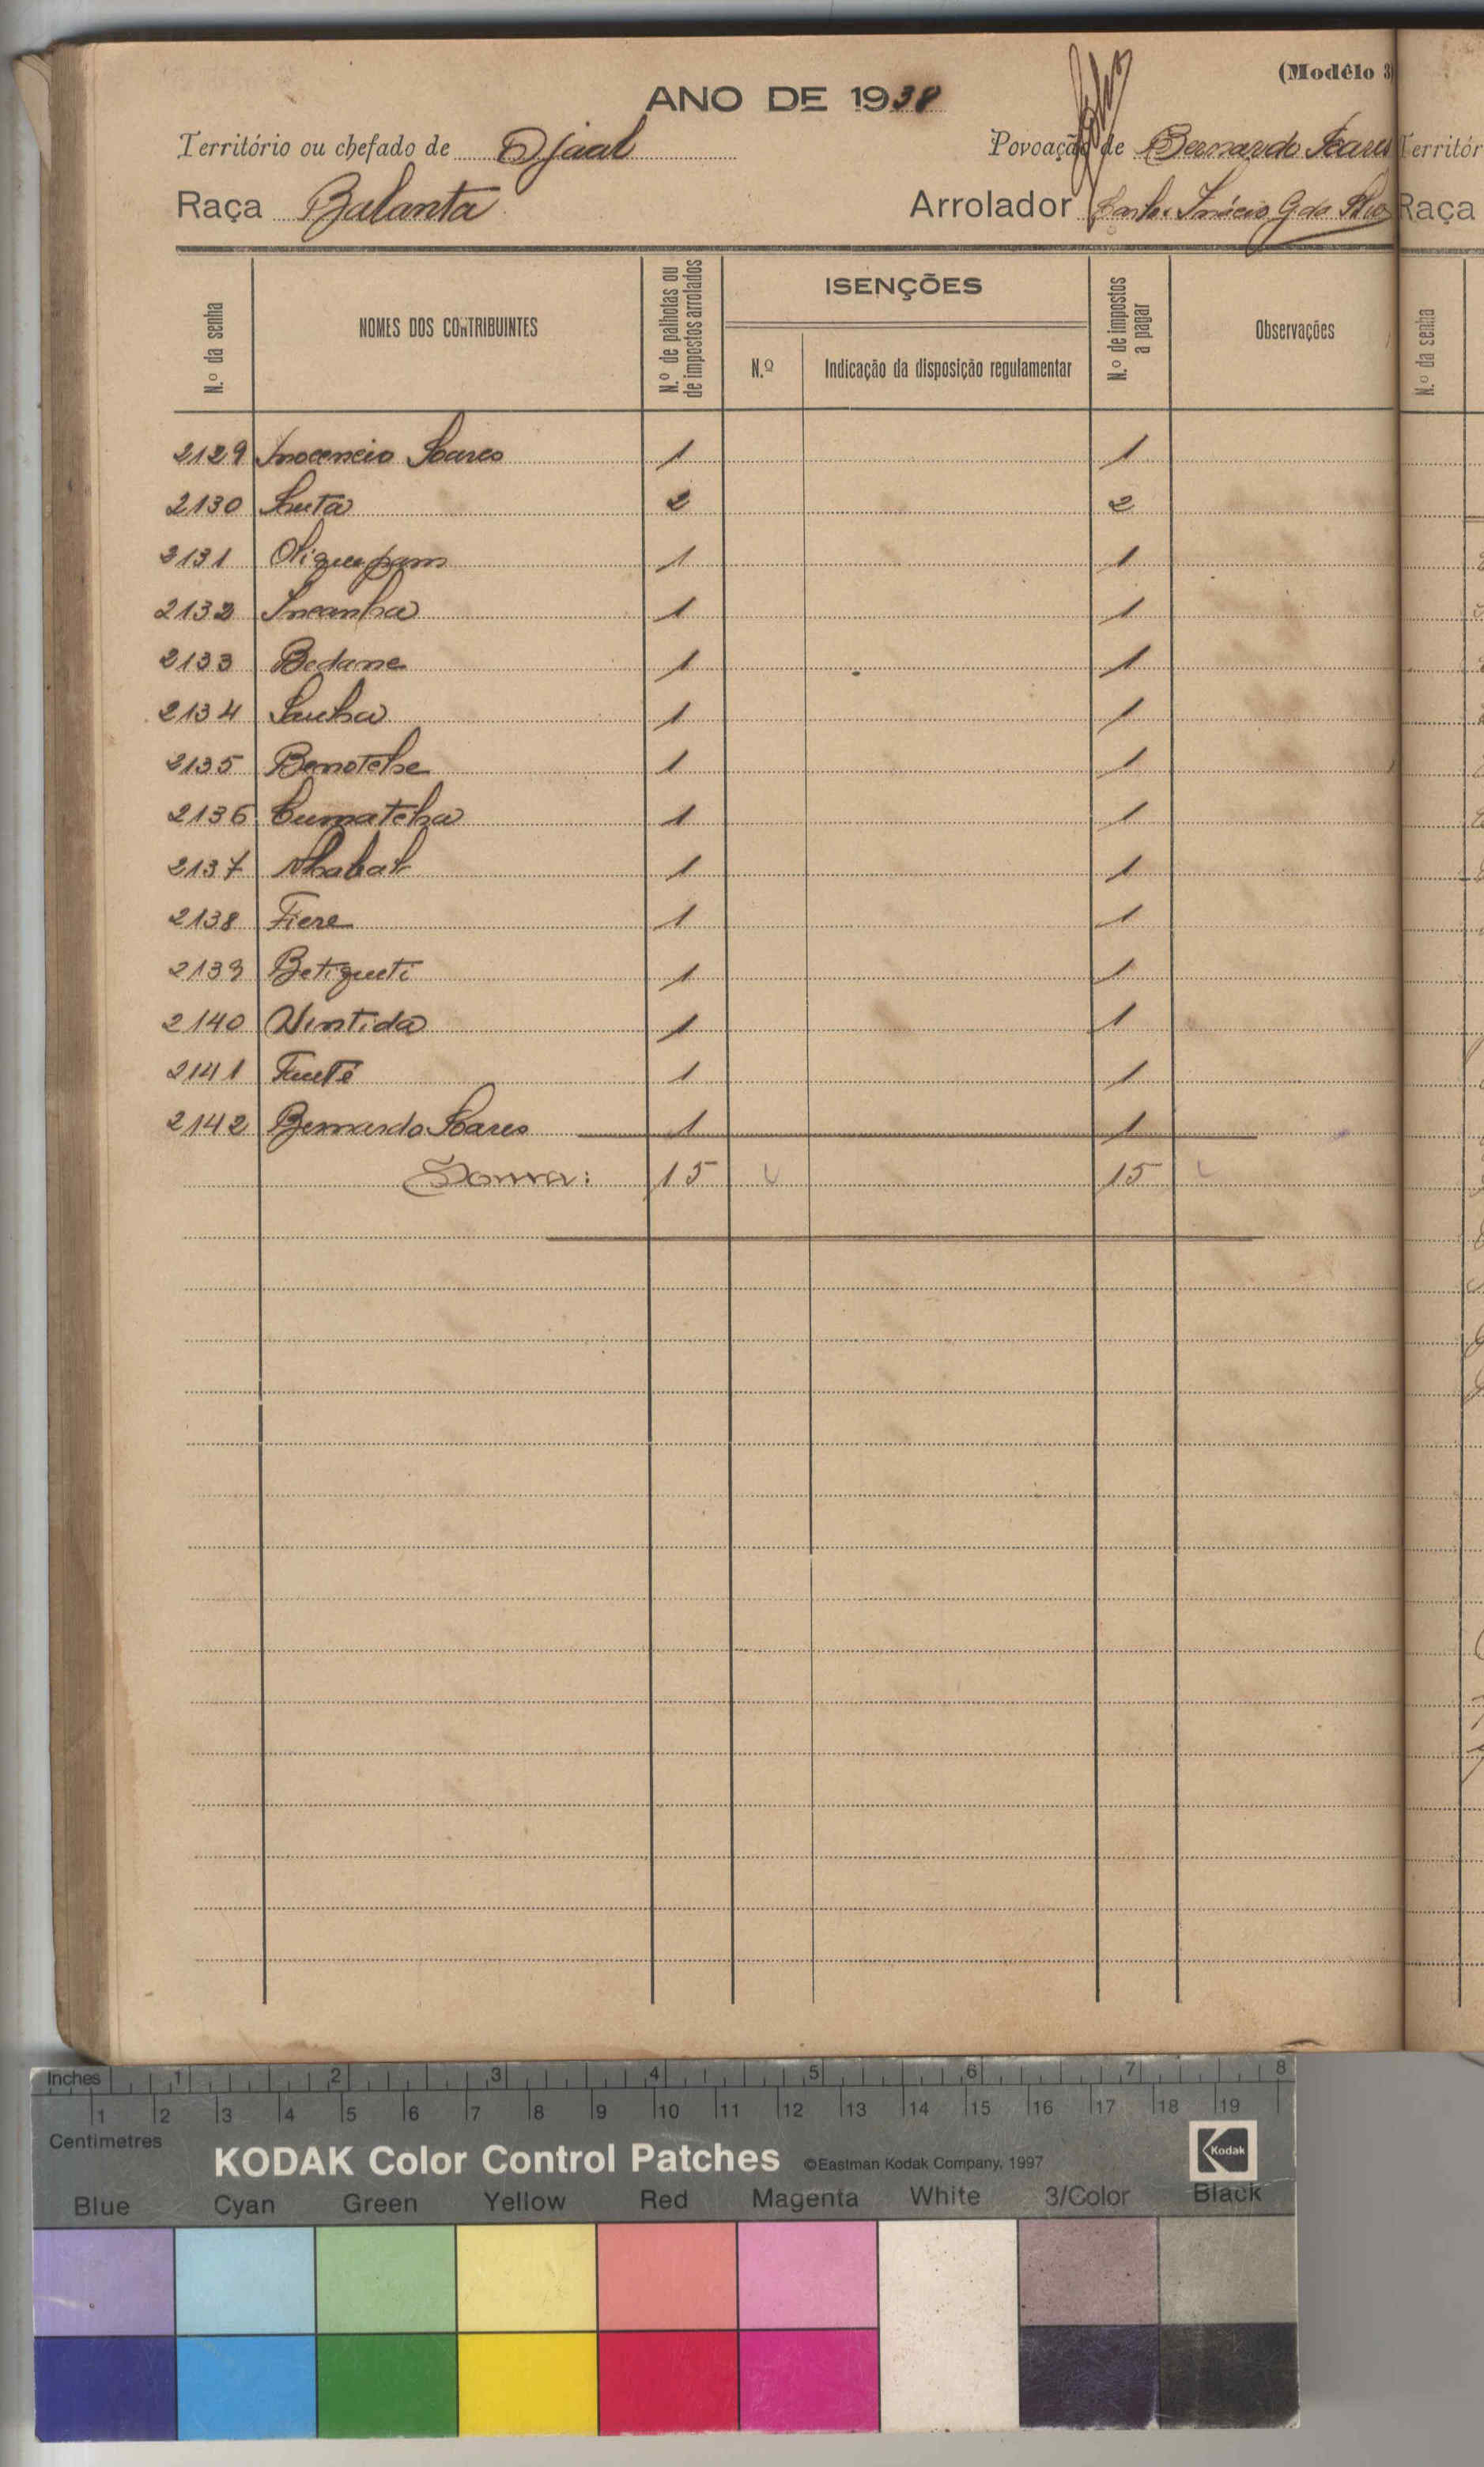 (Modêlo 3
ANO DE 1938
Território ou chefado de Djaal
Povoação de Bernardo Soares
Raça Balanta
Arrolador Inácio G da
N.º da senha
NOMES DOS CONTRIBUINTES
N.º de palhotas ou de impostos arrolados
ISENÇÕES
N.º
Indicação da disposição regulamentar
N.º de impostos a pagar
Observações
2129 Inocencio Soares 1 1
2130 Suta 2 2
2131 1 1
2132 Incanha 1 1
2133 Bedane 1 1
2134 Sanha 1 1
2135 Benotche 1 1
2136 Cumatcha 1 1
2137 Nhabat 1 1
2138 Fiere 1 1
2139 Betigueti 1 1
2140 Nintida 1 1
2141 Fuuté 1 1
2142 Bernardo Soares 1 1
Soma: 15 15
Territór
Raça
N.º da senha
Inches 1 2 3 4 5 6 7 8
1 2 3 4 5 6 7 8 9 10 11 12 13 14 15 16 17 18 19
Centimetres
KODAK Color Control Patches ©Eastman Kodak Company, 1997 Kodak
Blue Cyan Green Yellow Red Magenta White 3/Color Black